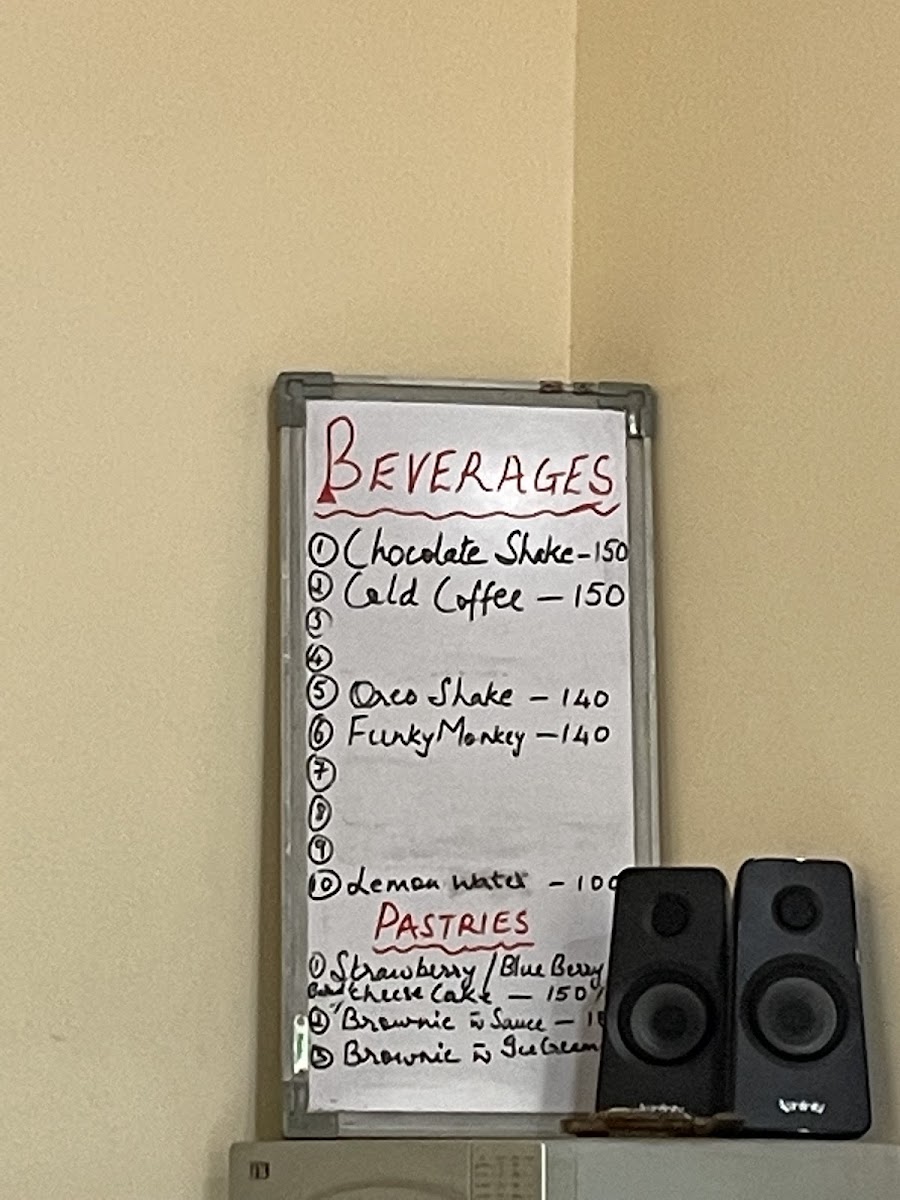 BEVERAGES
① Chocolate Shake - 150
② Cold Coffee - 150
③
④
⑤ Oreo Shake - 140
⑥ Funky Monkey - 140
⑦
⑧
⑨
⑩ Lemon Water - 100
PASTRIES
① Strawberry / Blue Berry
Cheese Cake - 150
② Brownie w̄ Sauce -
③ Brownie w̄ Ice Cream
Infinity
Infinity